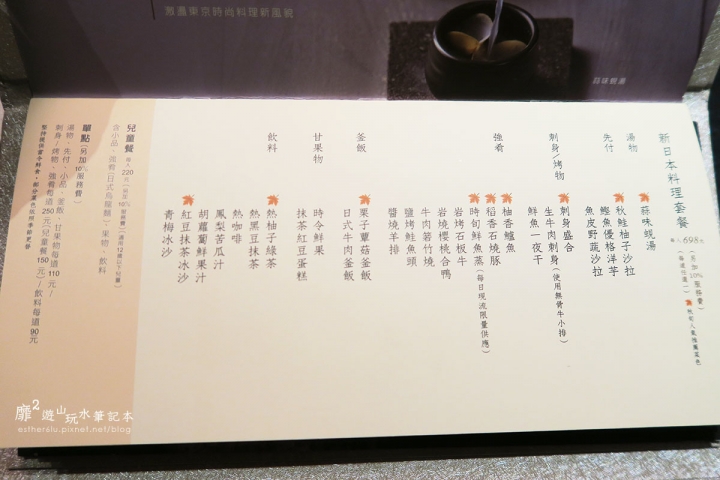 激盪東京時尚料理新風貌
蒜味蜆湯
新日本料理套餐
每人698元
(另加10%服務費)
(每道任選一)
秋旬人氣推薦菜色
湯物
蒜味蜆湯
先付
秋鮭柚子沙拉
鰹魚優格洋芋
魚皮野蔬沙拉
刺身/烤物
刺身盛合
生牛肉刺身(使用無骨牛小排)
鮮魚一夜干
強肴
柚香鱸魚
稻香石燒豚
時旬鮮魚蒸(每日現流限量供應)
岩烤石板牛
岩燒櫻桃合鴨
牛肉箬竹燒
鹽烤鮭魚頭
醬燒羊排
釜飯
栗子蕈菇釜飯
日式牛肉釜飯
甘果物
時令鮮果
抹茶紅豆蛋糕
飲料
熱柚子綠茶
熱黑豆抹茶
熱咖啡
鳳梨苦瓜汁
胡蘿蔔鮮果汁
紅豆抹茶冰沙
青梅冰沙
兒童餐 每人220元(另加10%服務費)(適用12歲以下兒童)
含小品、強肴(日式烏龍麵)、果物、飲料
單點(另加10%服務費)
湯物、先付、小品、釜飯、甘果物每道110元/
刺身/烤物、強肴每道250元(兒童餐150元)/飲料每道90元
堅持提供當令鮮食，部分菜色依照季節更替
靡2遊山玩水筆記本
esther8lu.pixnet.net/blog